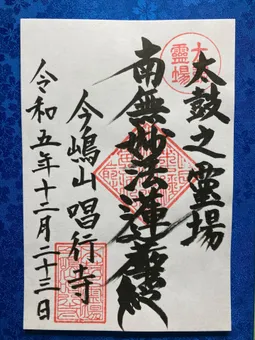 太鼓之霊場
南無妙法蓮華経
今嶋山 唱行寺
令和五年十二月二十三日